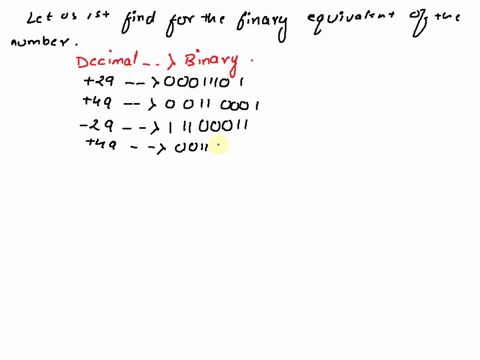 Let us 1st find for the binary equivalent of the
number.
Decimal --> Binary.
+29 --> 00011101
+49 --> 0011 0001
-29 --> 1 1100011
+49 --> 0011